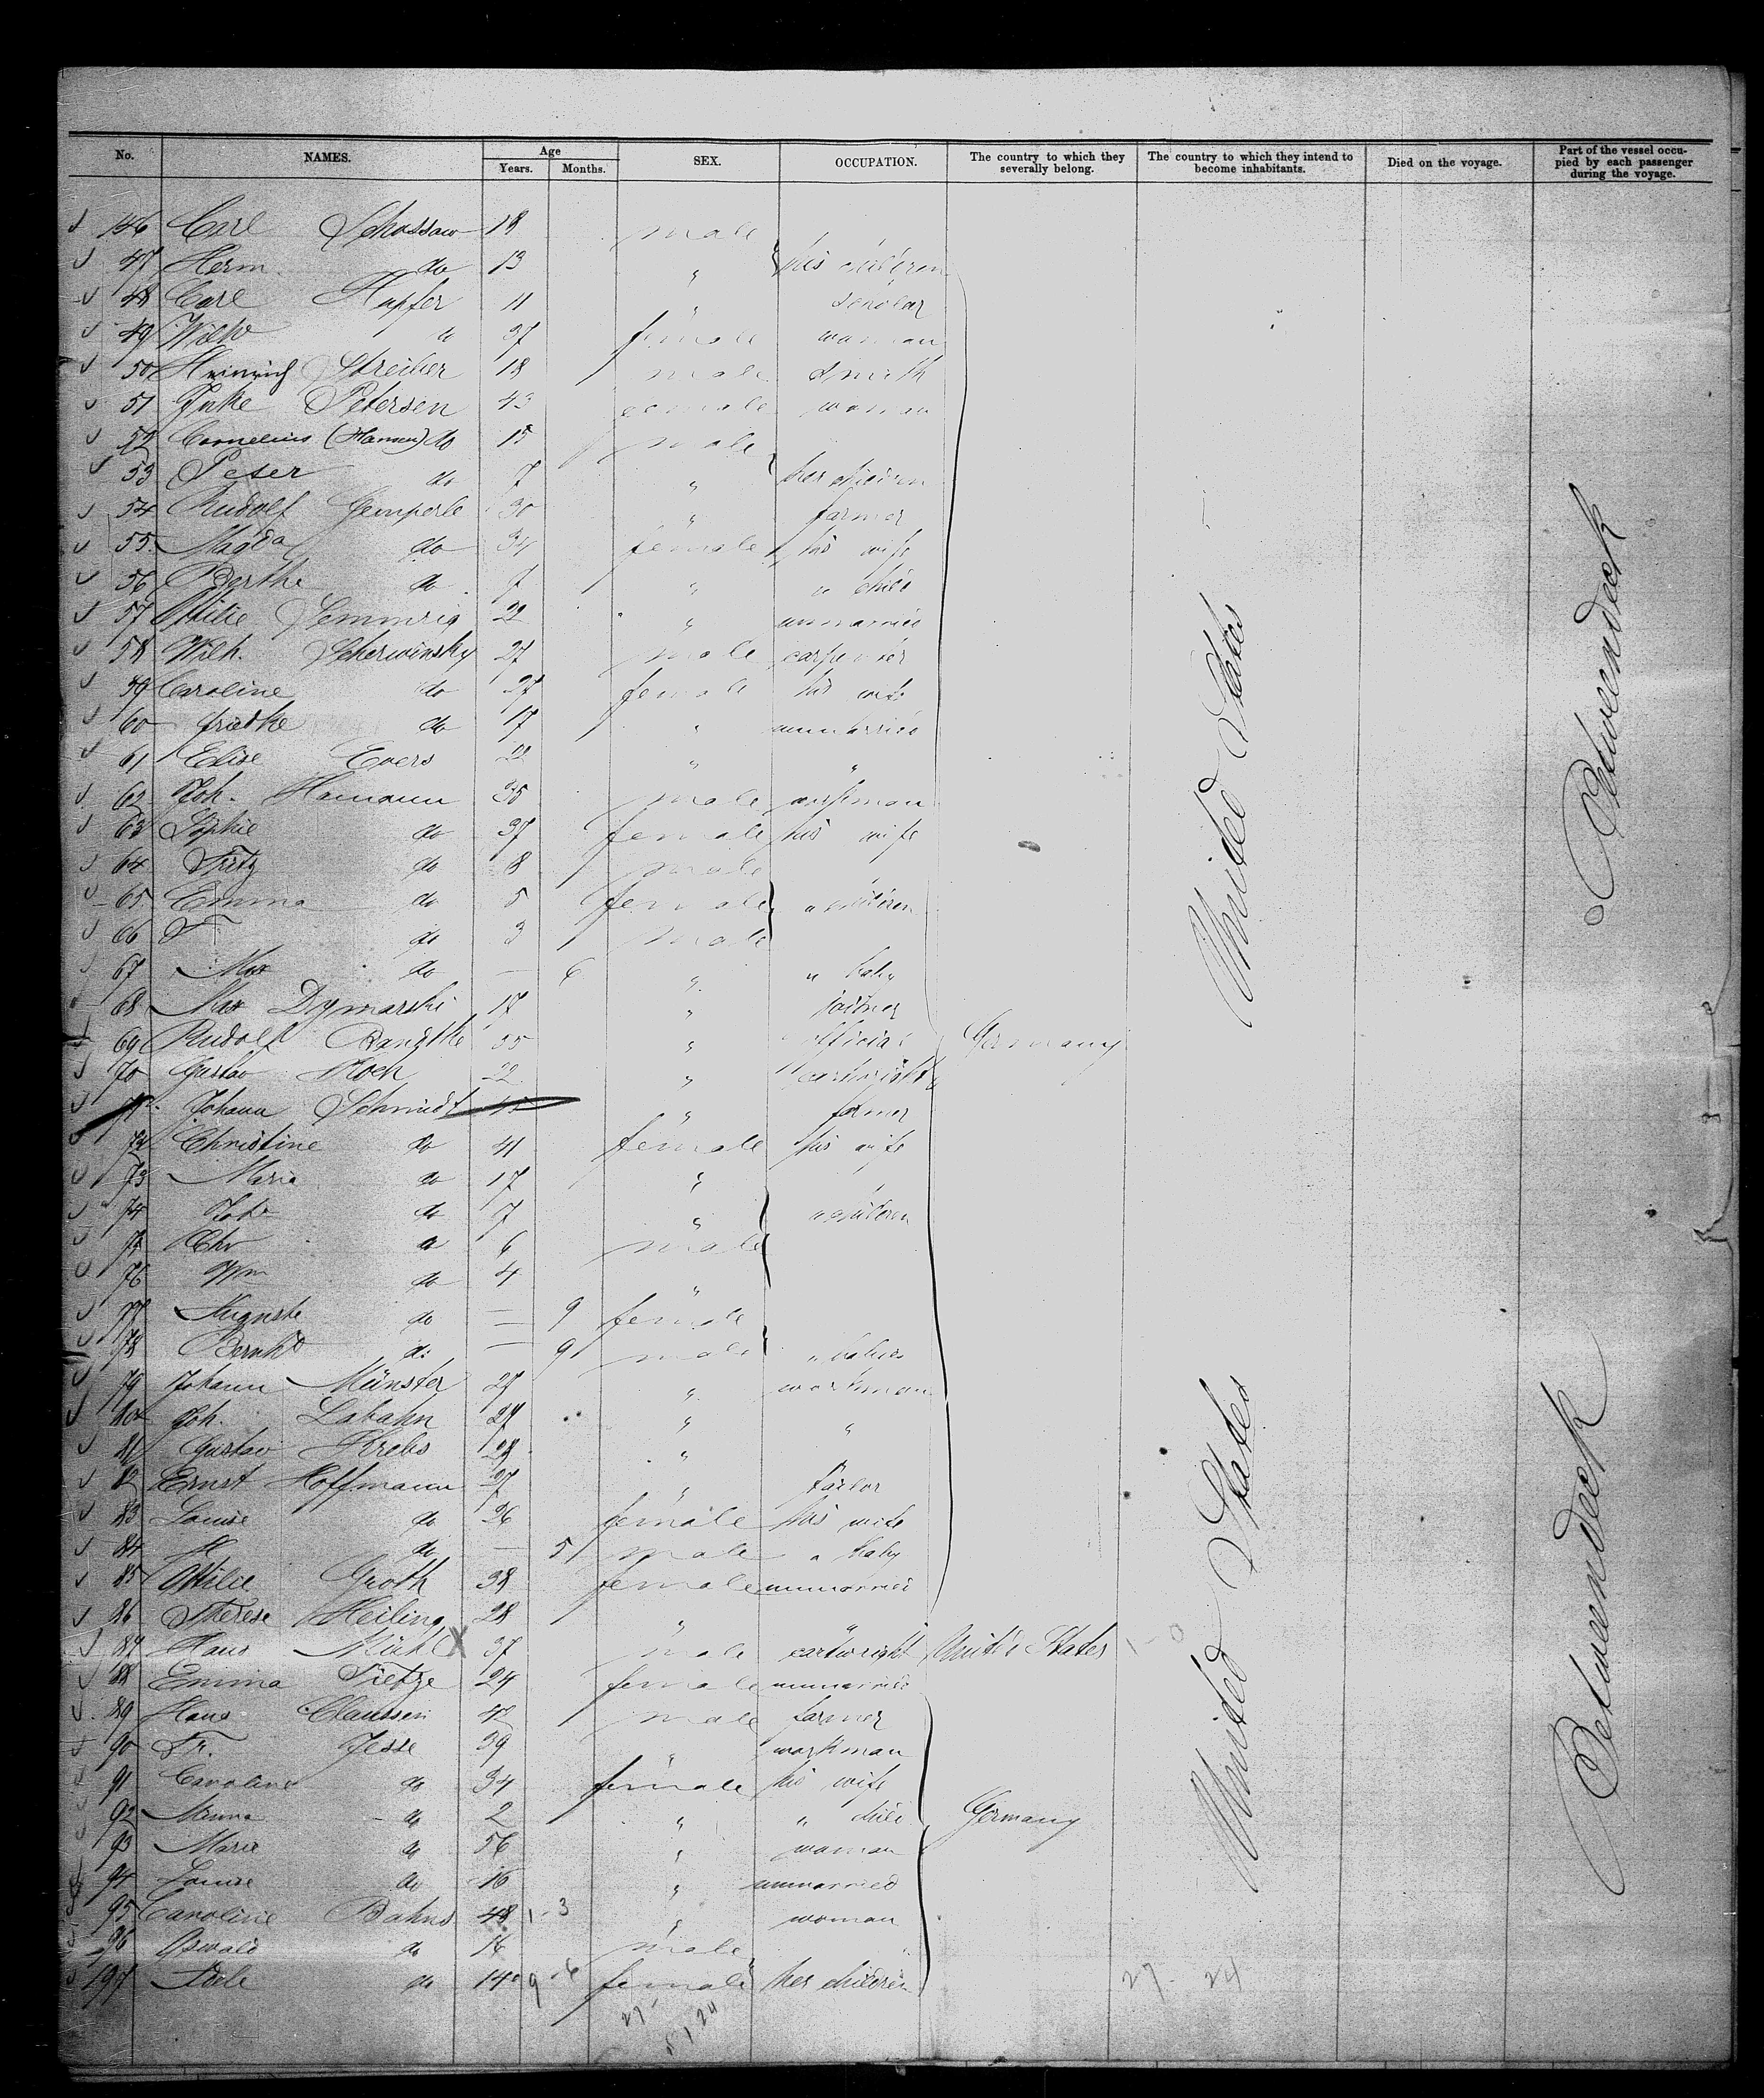 No. NAMES. Age Years. Months. SEX. OCCUPATION. The country to which they severally belong. The country to which they intend to become inhabitants. Died on the voyage. Part of the vessel occupied by each passenger during the voyage.
146 Carl Schossow 18 male
47 Herm. do 13 " his children
48 Carl Hupfer 11 " scholar
49 Wilh 37 female woman
50 Heinrich Streiber 18 male smith
51 Petersen 43 female woman
52 Cornelius (Hansen) do 15 male
53 Peter do 7 " her children
54 Rudolf Gemperle 30 " farmer
55 Magda do 34 female his wife
56 Berthe do 7 " " child
57 Ottilie 22 " unmarried
58 Wilh. Scherwinsky 27 male carpenter
59 Caroline do 27 female his wife
60 Friedke do 17 " unmarried
61 Elise Evers 22 " "
62 Joh. Hamann 35 male
63 Sophie do 37 female his wife
64 Fritz do 8 male
65 Emma do 5 female " children
66 F do 3 male
67 Max do — 6 " " baby
68 Max Dymarski 17 "
69 Rudolf Bandtke 35 " official Germany
70 Gustav Koch 22 " cartwright
71 Johann Schmidt " farmer
72 Christine do 41 female his wife
73 Maria do 17 "
74 Joh do 7 " " children
75 Chr 6 male
76 Wm do 4 "
77 Auguste do — 9 female
78 Bernhd do — 9 male " babies
79 Johann Münster 27 " workman
80 Joh. Labahn 27 " "
81 Gustav Krebs 28 "
82 Ernst Hoffmann 27 " tailor
83 Louise do 26 female his wife
84 H do — 5 male " baby
85 Ottilie Groth 38 female unmarried
86 Therese Heiling 28 " "
87 Hans X 37 male cartwright United States
88 Emma Tietze 24 female unmarried
89 Hans Claussen 42 male farmer
90 Fr. Jesse 39 " workman
91 Caroline do 34 female his wife
92 Minna do 2 " " child Germany
93 Marie do 56 " woman
94 Louise do 16 " unmarried
95 Caroline Bahns 48 1-3 " woman
96 Oswald do 16 male
197 Adele do 14 9-6 female her children
27- 24
27-
24
United States
United States
Betweendeck
Betweendeck